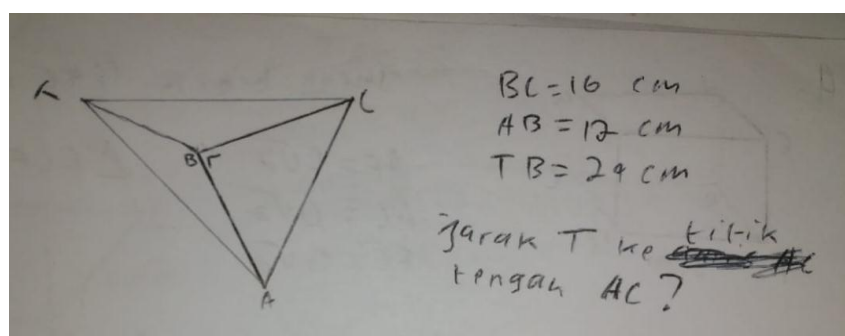 C
B
A
BC=16 cm
AB=12 cm
TB=24 cm
jarak T ke titik
tengah AC?